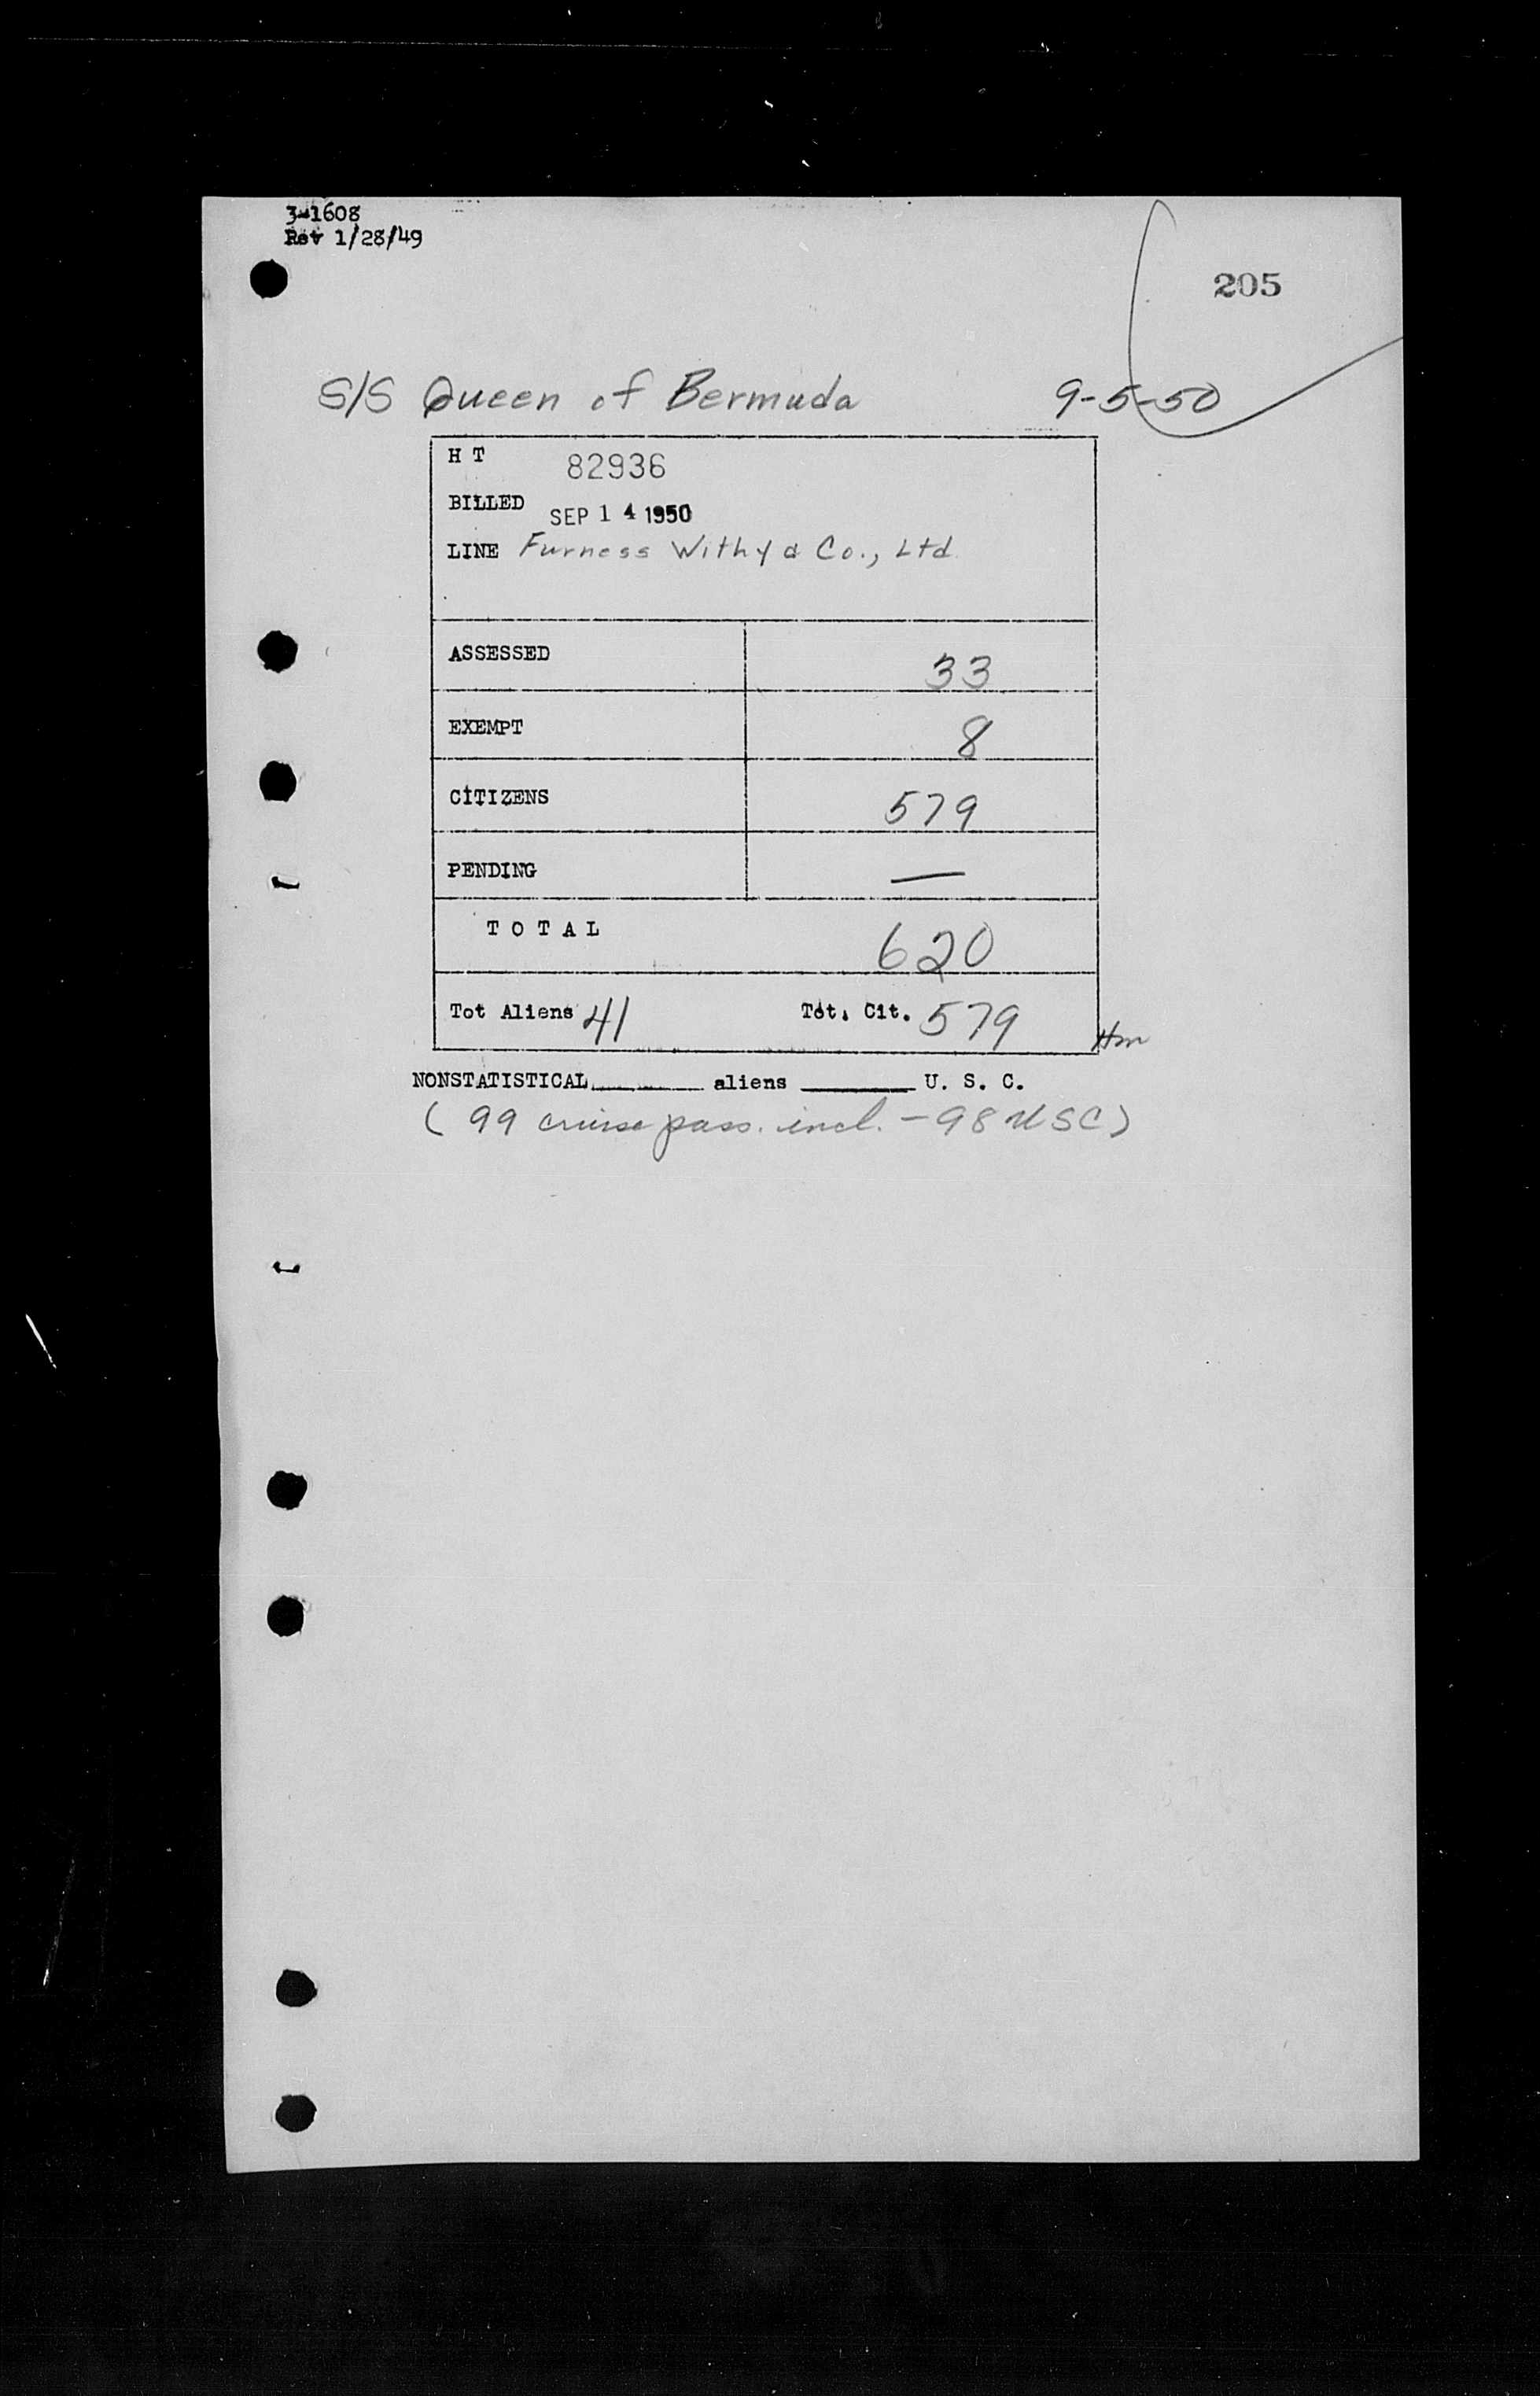 3-1608
Rev 1/28/49
205
S/S Queen of Bermuda 9-5-50
H T 82936
BILLED SEP 14 1950
LINE Furness Withy & Co., Ltd
ASSESSED 33
EXEMPT 8
CITIZENS 579
PENDING —
T O T A L 620
Tot Aliens 41 Tot. Cit. 579
Hm
NONSTATISTICAL________ aliens ________ U. S. C.
( 99 cruise pass. incl. - 98 USC )